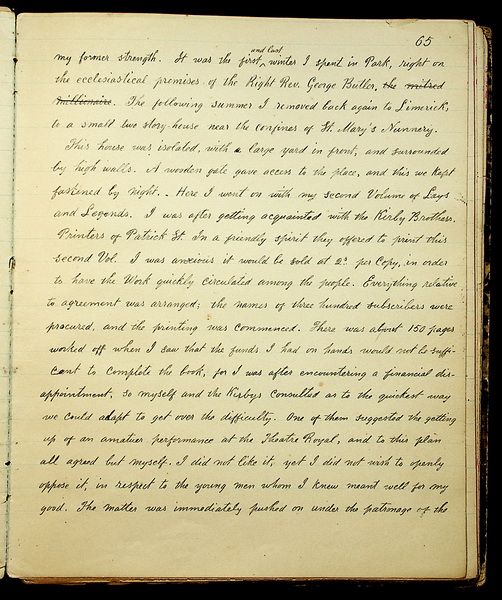 65
and last
my former strength. It was the first, winter I spent in Park, right on
the ecclesiastical premises of the Right Rev. George Butler, the mitred
millionaire. The following summer I removed back again to Limerick,
to a small two story-house near the confines of St. Mary's Nunnery.
This house was isolated, with a large yard in front, and surrounded
by high walls. A wooden gate gave access to the place, and this we kept
fastened by night. Here I went on with my second Volume of Lays
and Legends. I was after getting acquainted with the Kirby Brothers,
Printers of Patrick St. In a friendly spirit they offered to print this
second Vol. I was anxious it would be sold at 2s. per Copy, in order
to have the Work quickly circulated among the people. Everything relative
to agreement was arranged; the names of three hundred subscribers were
procured, and the printing was commenced. There was about 150 pages
worked off when I saw that the funds I had on hands would not be suffi-
cant to complete the book, for I was after encountering a financial dis-
appointment, so myself and the Kirbys consulted as to the quickest way
we could adapt to get over the difficulty. One of them suggested the getting
up of an amatuer performance at the Theatre Royal, and to this plan
all agreed but myself. I did not like it, yet I did not wish to openly
oppose it, in respect to the young men whom I knew meant well for my
good. The matter was immediately pushed on under the patronage of the